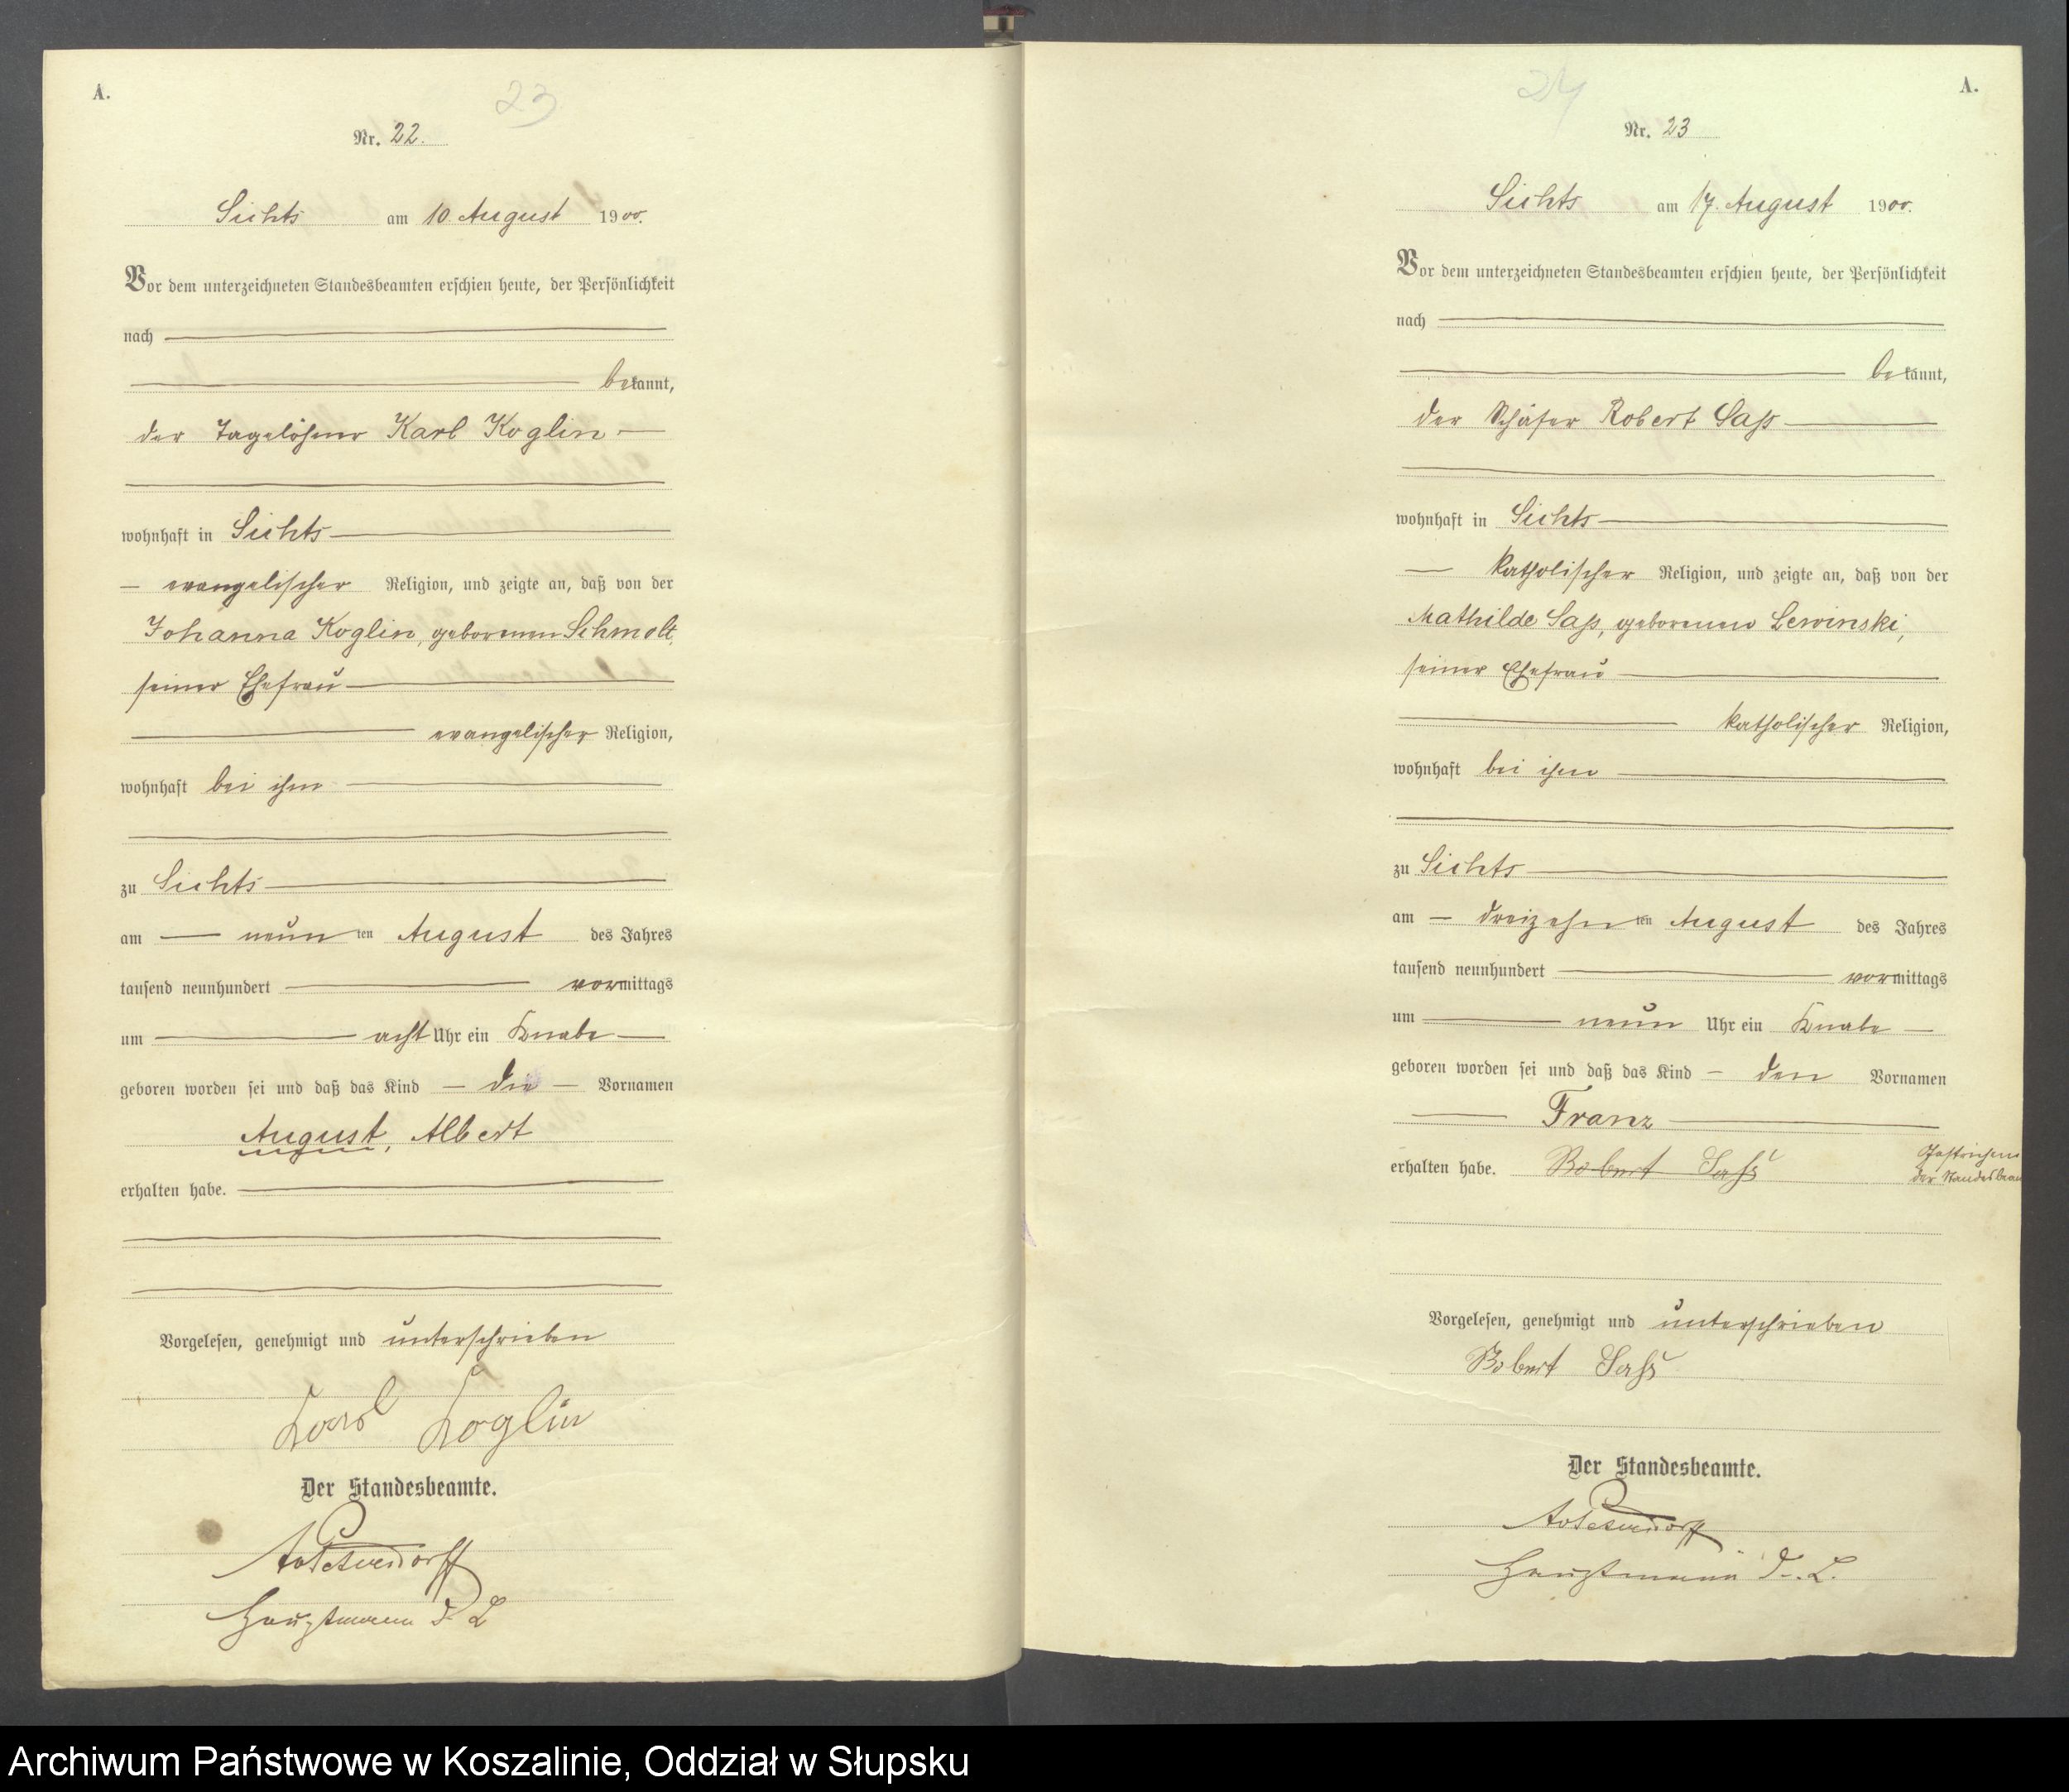 A.
23
Nr. 22.
Sichts am 10. August 1900.
Vor dem unterzeichneten Standesbeamten erschien heute, der Persönlichkeit
nach
bekannt,
der Tagelöhner Karl Koglin
wohnhaft in Sichts
evangelischer Religion, und zeigte an, daß von der
Johanna Koglin, geborenen Schmolt,
seiner Ehefrau
evangelischer Religion,
wohnhaft bei ihm
zu Sichts
am neunten August des Jahres
tausend neunhundert vormittags
um acht Uhr ein Knabe
geboren worden sei und daß das Kind die Vornamen
August, Albert
erhalten habe.
Vorgelesen, genehmigt und unterschrieben
Karl Koglin
Der Standesbeamte.
Hauptmann d. L.
A.
24
Nr. 23
Sichts am 17. August 1900.
Vor dem unterzeichneten Standesbeamten erschien heute, der Persönlichkeit
nach
bekannt,
der Schäfer Robert Saß
wohnhaft in Sichts
katholischer Religion, und zeigte an, daß von der
Mathilde Saß, geborenen Lewinski,
seiner Ehefrau
katholischer Religion,
wohnhaft bei ihm
zu Sichts
am dreizehnten August des Jahres
tausend neunhundert vormittags
um neun Uhr ein Knabe
geboren worden sei und daß das Kind den Vornamen
Franz
erhalten habe. Robert Saß
Gestrichen
der Standesbeam
Vorgelesen, genehmigt und unterschrieben
Robert Saß
Der Standesbeamte.
Hauptmann d. L.
Archiwum Państwowe w Koszalinie, Oddział w Słupsku